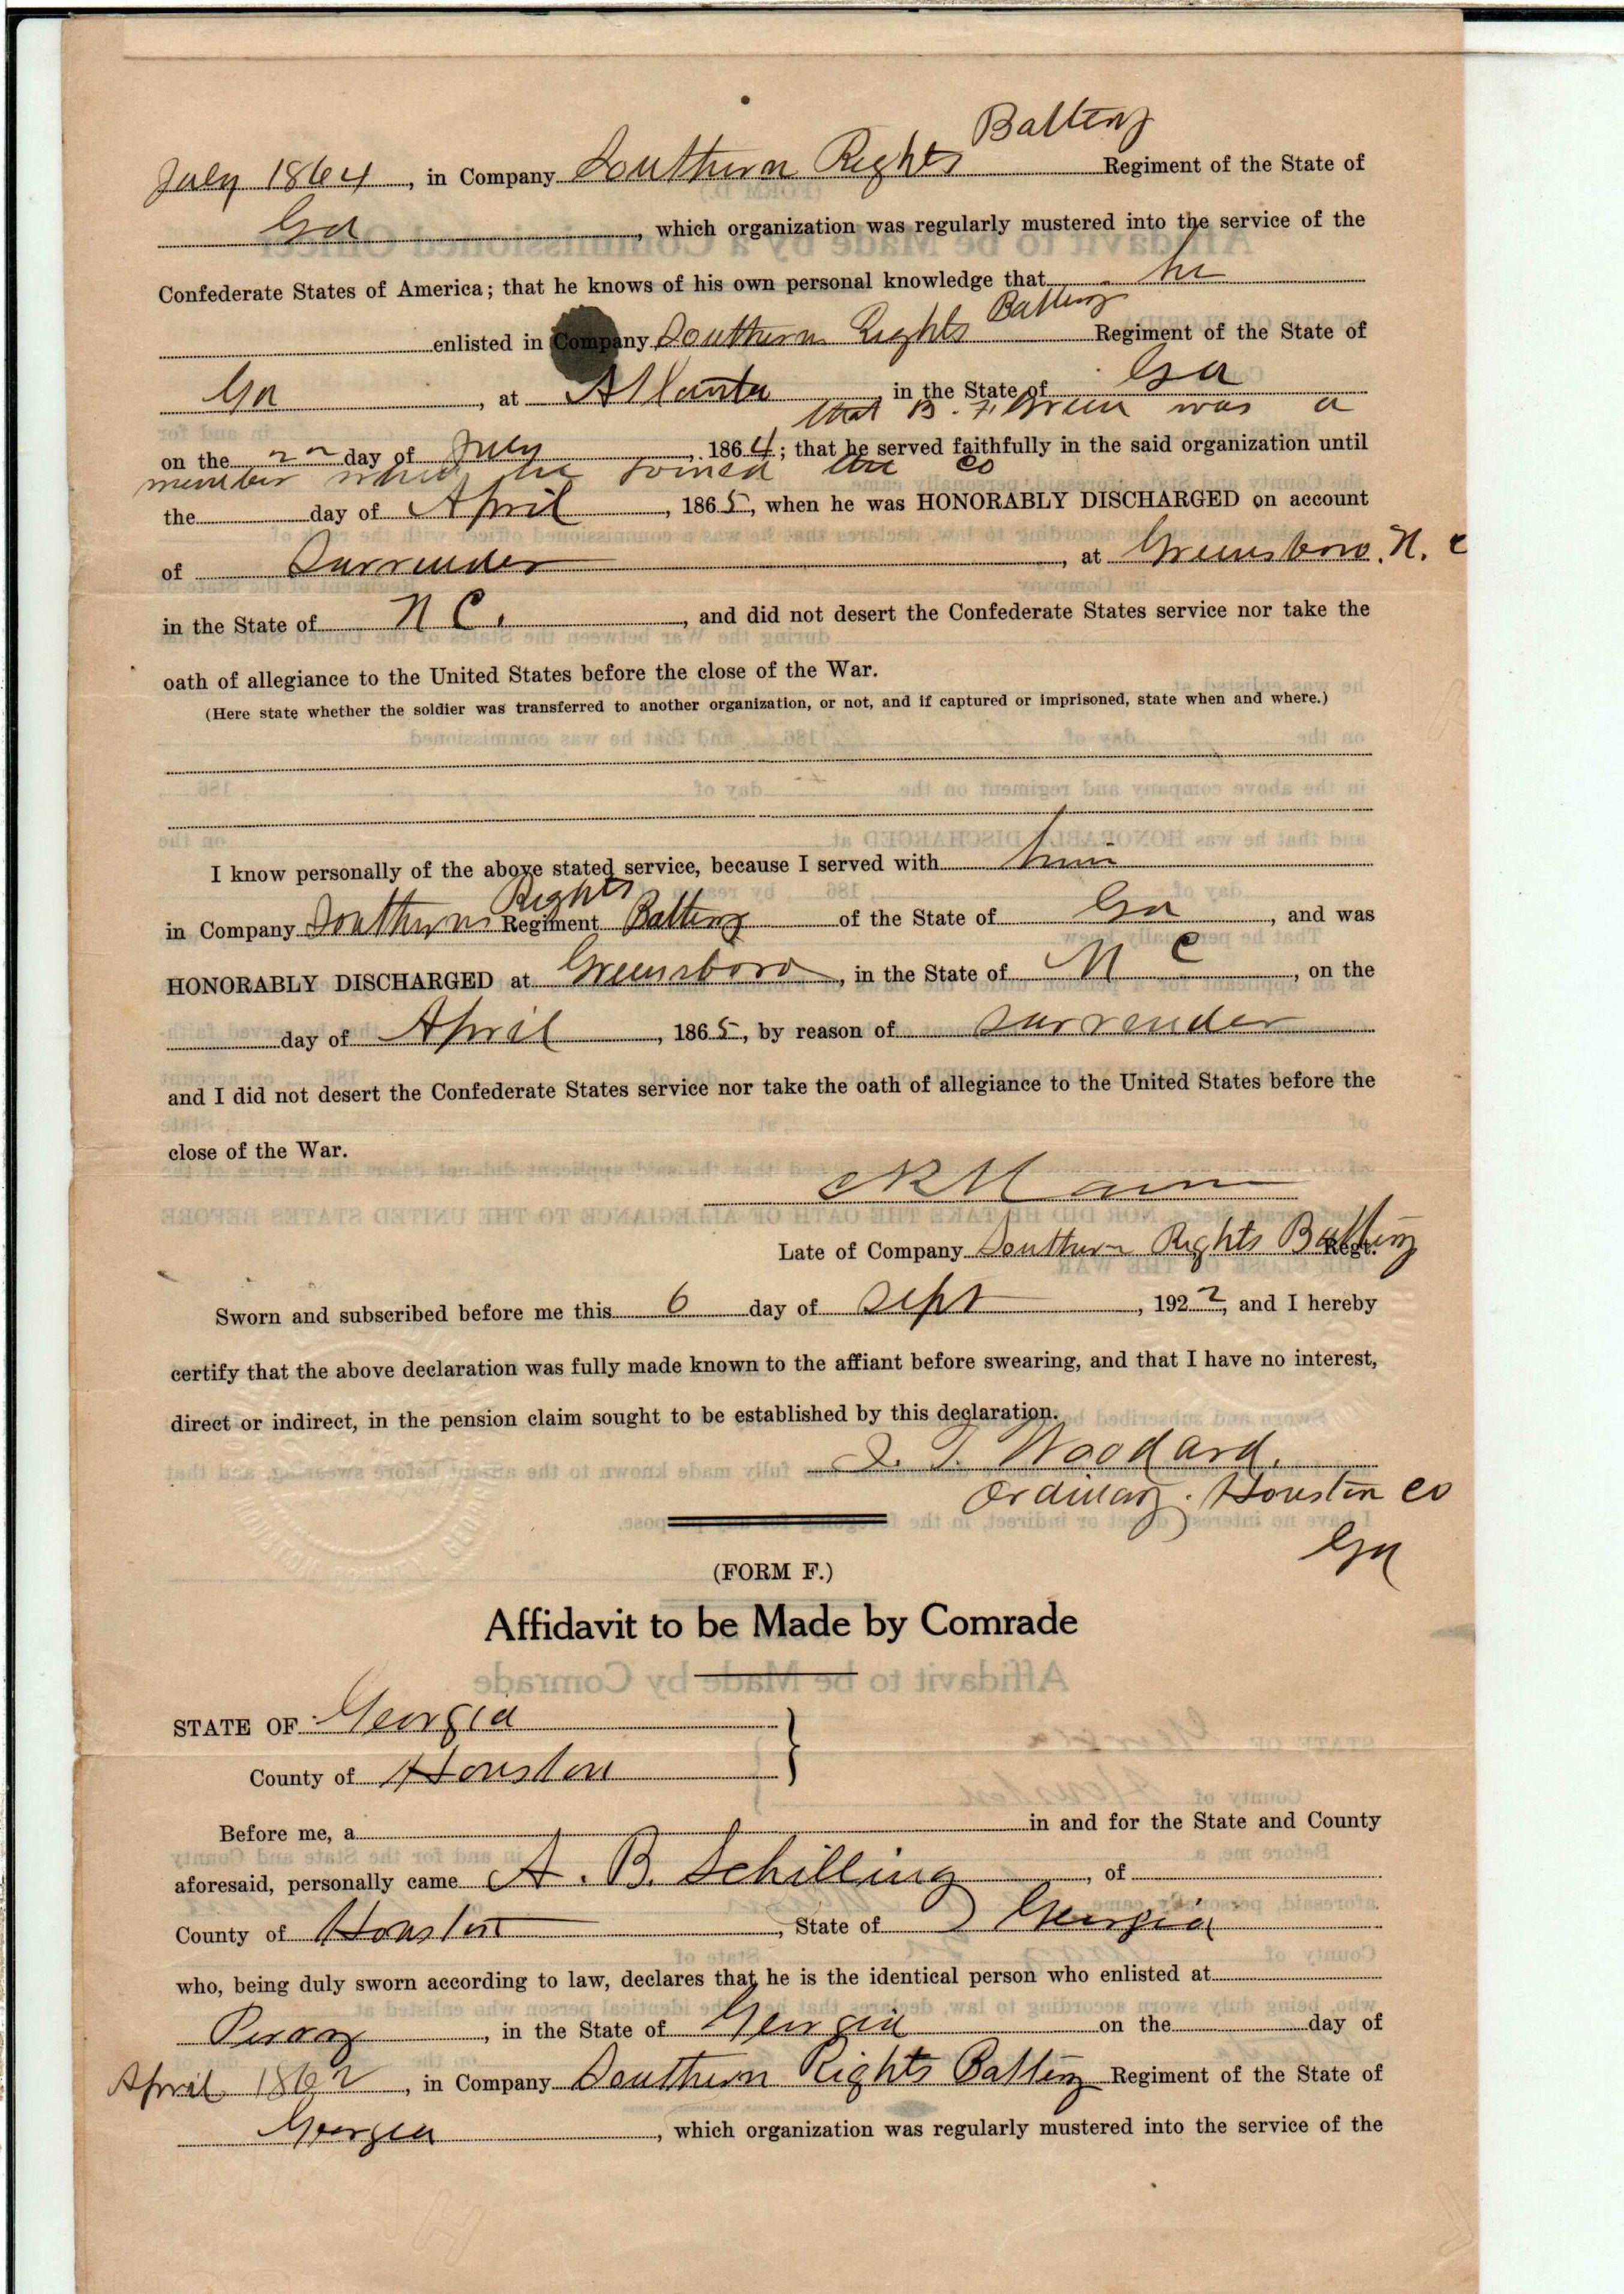 Battery
July 1864, in Company Southern Rights Regiment of the State of
Ga, which organization was regularly mustered into the service of the
Confederate States of America; that he knows of his own personal knowledge that he
Battery
enlisted in Company Southern Rights Regiment of the State of
Ga, at Atlanta, in the State of Ga
that B. F. Green was a
on the day of July, 1864; that he served faithfully in the said organization until
member when he joined the Co
the day of April, 1865, when he was HONORABLY DISCHARGED on account
of Surrender, at Greensboro, N. C
in the State of N C., and did not desert the Confederate States service nor take the
oath of allegiance to the United States before the close of the War.
(Here state whether the soldier was transferred to another organization, or not, and if captured or imprisoned, state when and where.)
I know personally of the above stated service, because I served with him
Rights
in Company Southern Regiment Battery of the State of Ga, and was
HONORABLY DISCHARGED at Greensboro, in the State of N C, on the
day of April, 1865, by reason of Surrender
and I did not desert the Confederate States service nor take the oath of allegiance to the United States before the
close of the War.
Late of Company Southern Rights Battery Regt.
Sworn and subscribed before me this 6 day of Sept, 1922, and I hereby
certify that the above declaration was fully made known to the affiant before swearing, and that I have no interest,
direct or indirect, in the pension claim sought to be established by this declaration.
T. Woodard.
Ordinary. Houston Co
Ga
(FORM F.)
Affidavit to be Made by Comrade
STATE OF Georgia
County of Houston
Before me, a in and for the State and County
aforesaid, personally came A. B. Schilling, of
County of Houston, State of Georgia
who, being duly sworn according to law, declares that he is the identical person who enlisted at
Perry, in the State of Georgia on the day of
April 1862, in Company Southern Rights Battery Regiment of the State of
Georgia, which organization was regularly mustered into the service of the